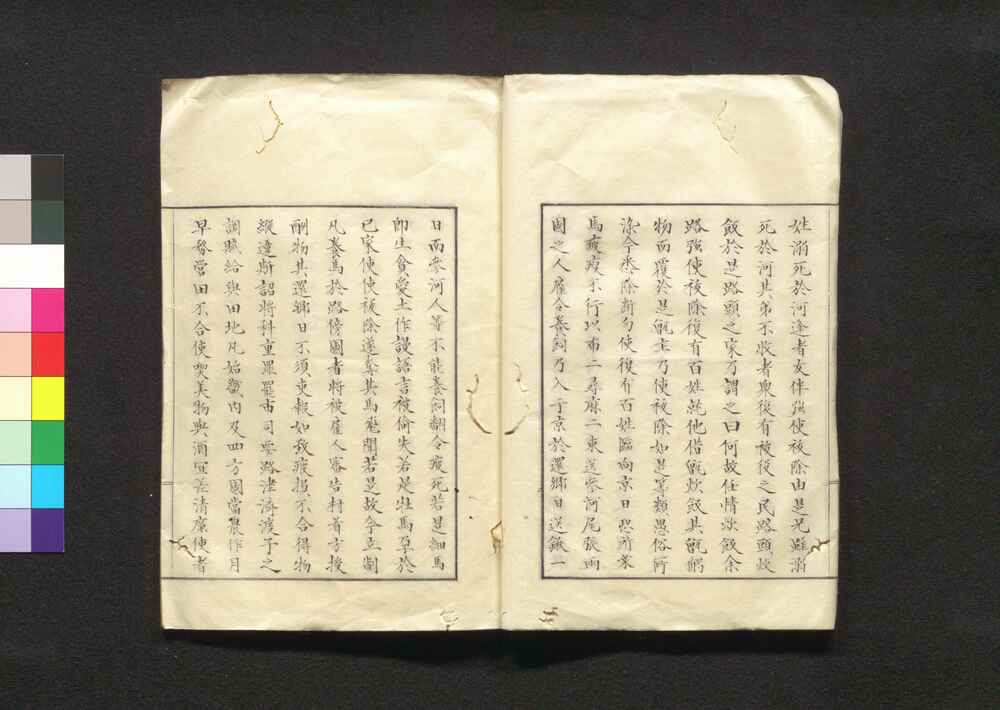 姓溺死於河逢者友伴強使祓除由是兄雖溺
死於河其弟不收者衆復有被役之民路頭炊
飯於是路頭之家乃謂之曰何故任情炊飯余
路強使祓除復有百姓就他借甑炊飯其甑觸
物而覆於是甑主乃使祓除如是等類愚俗所
染今悉除斷勿使復有百姓臨向京日恐所乘
馬疲瘦不行以布二尋麻二束送參河尾張兩
國之人雇令養飼乃入于京於還鄉日送鍬一
口而參河人等不能養飼翻令瘦死若是細馬
即生貪愛工作謾語言被偷失若是牝馬孕於
己家便使祓除遂奪其馬飛聞若是故今立制
凡養馬於路傍國者將被雇人審告村首方授
酬物其還鄉日不須更報如致疲損不合得物
縱違斯詔將科重罪罷市司要路津濟渡子之
調賦給與田地凡始畿內及四方國當農作月
早務營田不合使喫美物與酒宜差清廉使者